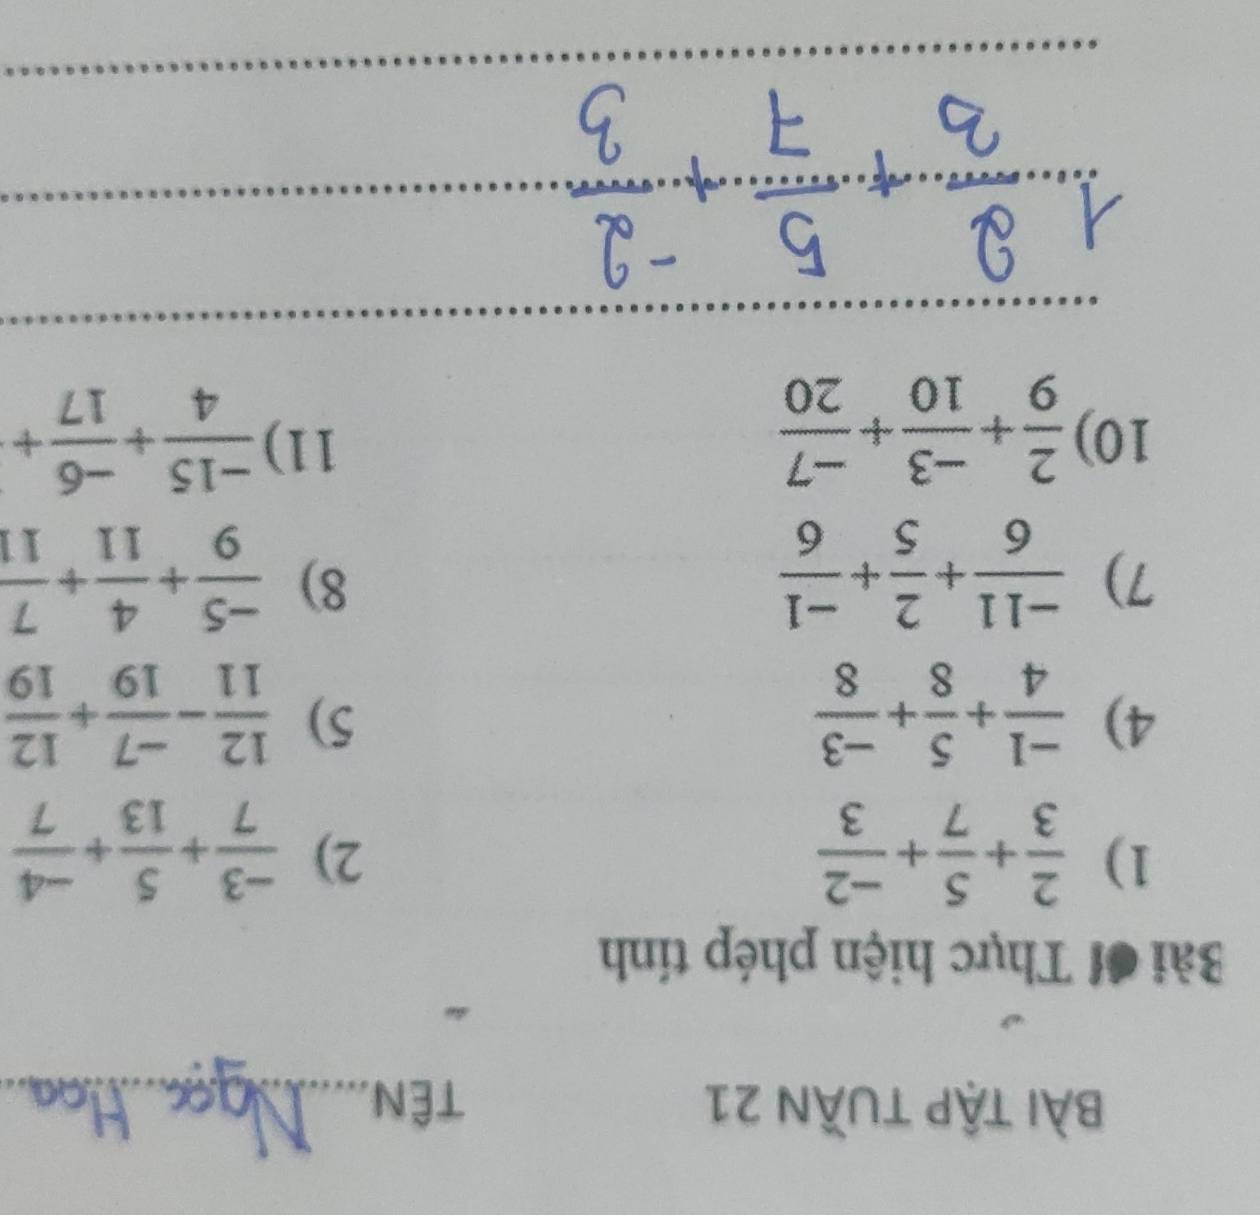 BÀI TẬP TUẦN 21 TÊN......Ngọc Hoa
Bài 1 Thực hiện phép tính
1) 2/3 + 5/7 + -2/3 2) -3/7 + 5/13 + -4/7
4) -1/4 + 5/8 + -3/8 5) 12/11 - -7/19 + 12/19
7) -11/6 + 2/5 + -1/6 8) -5/9 + 4/11 + 7/11
10) 2/9 + -3/10 + -7/20 11) -15/4 + -6/17 +
1 2/3 + 5/7 + -2/3